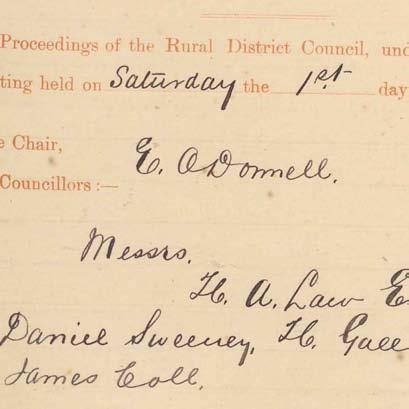 Proceedings of the Rural District Council, und
ting held on Saturday the 1st day
e Chair,
E. O'Donnell.
Councillors :—
Messrs.
H. A. Law E
Daniel Sweeney, H. Gall
James Coll.